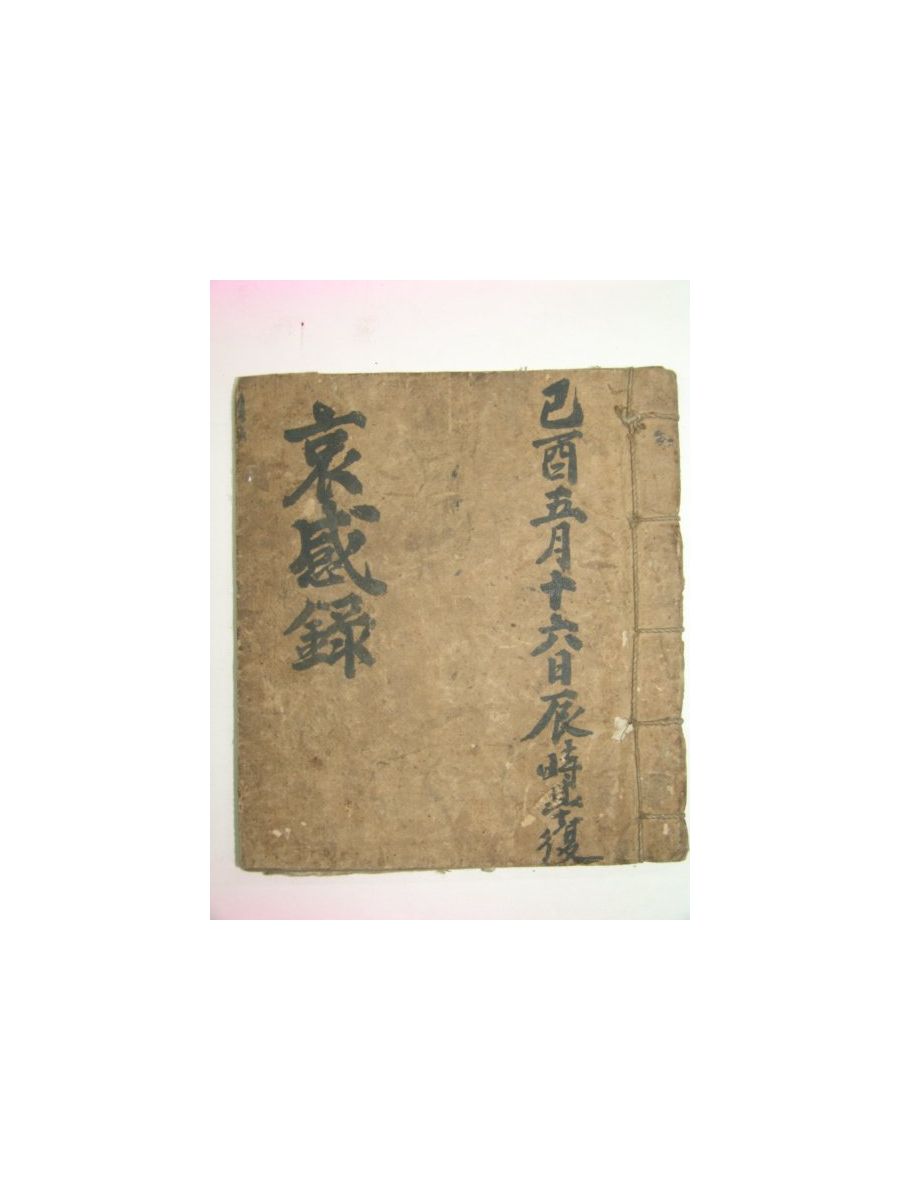 己酉五月十六日辰時皐復
哀感錄